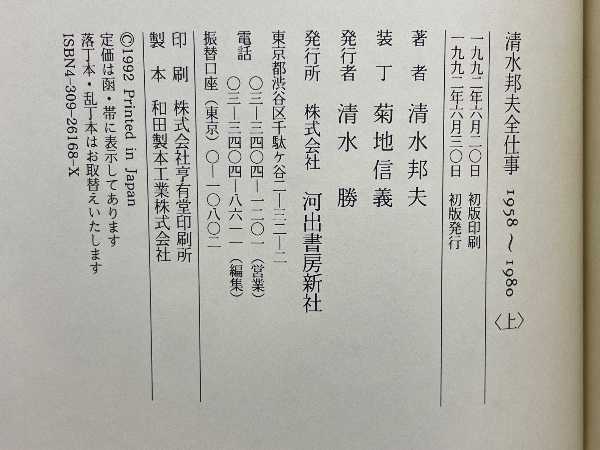 清水邦夫全仕事 1958〜1980〈上〉
一九九二年六月二〇日 初版印刷
一九九二年六月三〇日 初版発行
著者 清水邦夫
装丁 菊地信義
発行者 清水勝
発行所 株式会社 河出書房新社
東京都渋谷区千駄ケ谷二―三二―二
電話 〇三―三四〇四―一二〇一（営業）
〇三―三四〇四―八六一一（編集）
振替口座（東京）〇―一〇八〇二
印刷 株式会社亨有堂印刷所
製本 和田製本工業株式会社
©1992 Printed in Japan
定価は函・帯に表示してあります
落丁本・乱丁本はお取替えいたします
ISBN4-309-26168-X